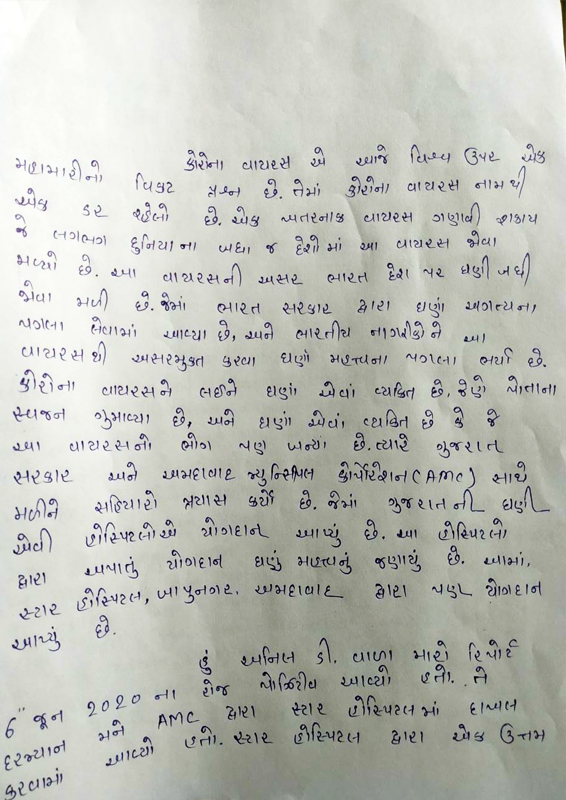 કોરોના વાયરસ એ આજે વિશ્વ ઉપર એક
મહામારીનો વિકટ પ્રશ્ન છે. તેમાં કોરોના વાયરસ નામથી
એક ડર ફેલો છે. એક ખતરનાક વાયરસ ગણાવી શકાય
જે લગભગ દુનિયાના બધા જ દેશોમાં આ વાયરસ જોવા
મળ્યો છે. આ વાયરસની અસર ભારત દેશ પર ઘણી બધી
જોવા મળી છે. જેમાં ભારત સરકાર દ્વારા ઘણાં અગત્યના
પગલા લેવામાં આવ્યા છે, અને ભારતીય નાગરીકોને આ
વાયરસથી અસરમુક્ત કરવા ઘણાં મહત્વના પગલા ભર્યા છે.
કોરોના વાયરસને લઈને ઘણાં એવાં વ્યકિત છે, જેણે પોતાના
સ્વજન ગુમાવ્યા છે, અને ઘણાં એવાં વ્યકિત છે કે જે
આ વાયરસનો ભોગ પણ બન્યા છે. ત્યારે ગુજરાત
સરકાર અને અમદાવાદ મ્યુનિસિપલ કોર્પોરેશન (AMC) સાથે
મળીને સહિયારો પ્રયાસ કર્યો છે. જેમાં ગુજરાતની ઘણી
એવી હોસ્પિટલોએ યોગદાન આપ્યું છે. આ હોસ્પિટલો
દ્વારા અપાતું યોગદાન ઘણું મહત્વનું જણાયું છે. આમાં,
સ્ટાર હોસ્પિટલ, બાપુનગર. અમદાવાદ દ્વારા પણ યોગદાન
આપ્યું છે.
હું અનિલ ડી. વાળા મારો રિપોર્ટ
6" જૂન 2020 ના રોજ પોઝિટીવ આવ્યો હતો. તે
દરમ્યાન મને AMC દ્વારા સ્ટાર હોસ્પિટલમાં દાખલ
કરવામાં આવ્યો હતો. સ્ટાર હોસ્પિટલ દ્વારા એક ઉત્તમ